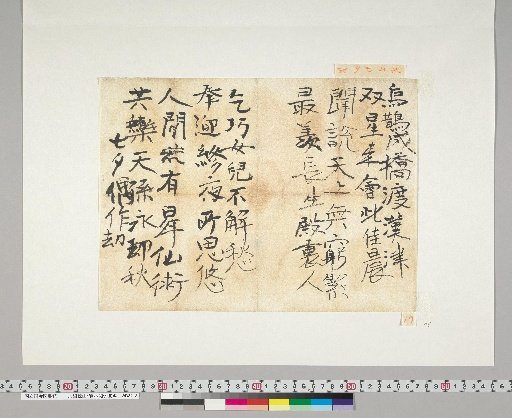 烏鵲成橋渡漢津
双星幸會此佳晨
聞説天上無窮
最羨長生殿裏人
乞巧女兒不解愁
奉迎終夜所思悠
人間若有昇仙術
共樂天孫永却秋
七夕偶作